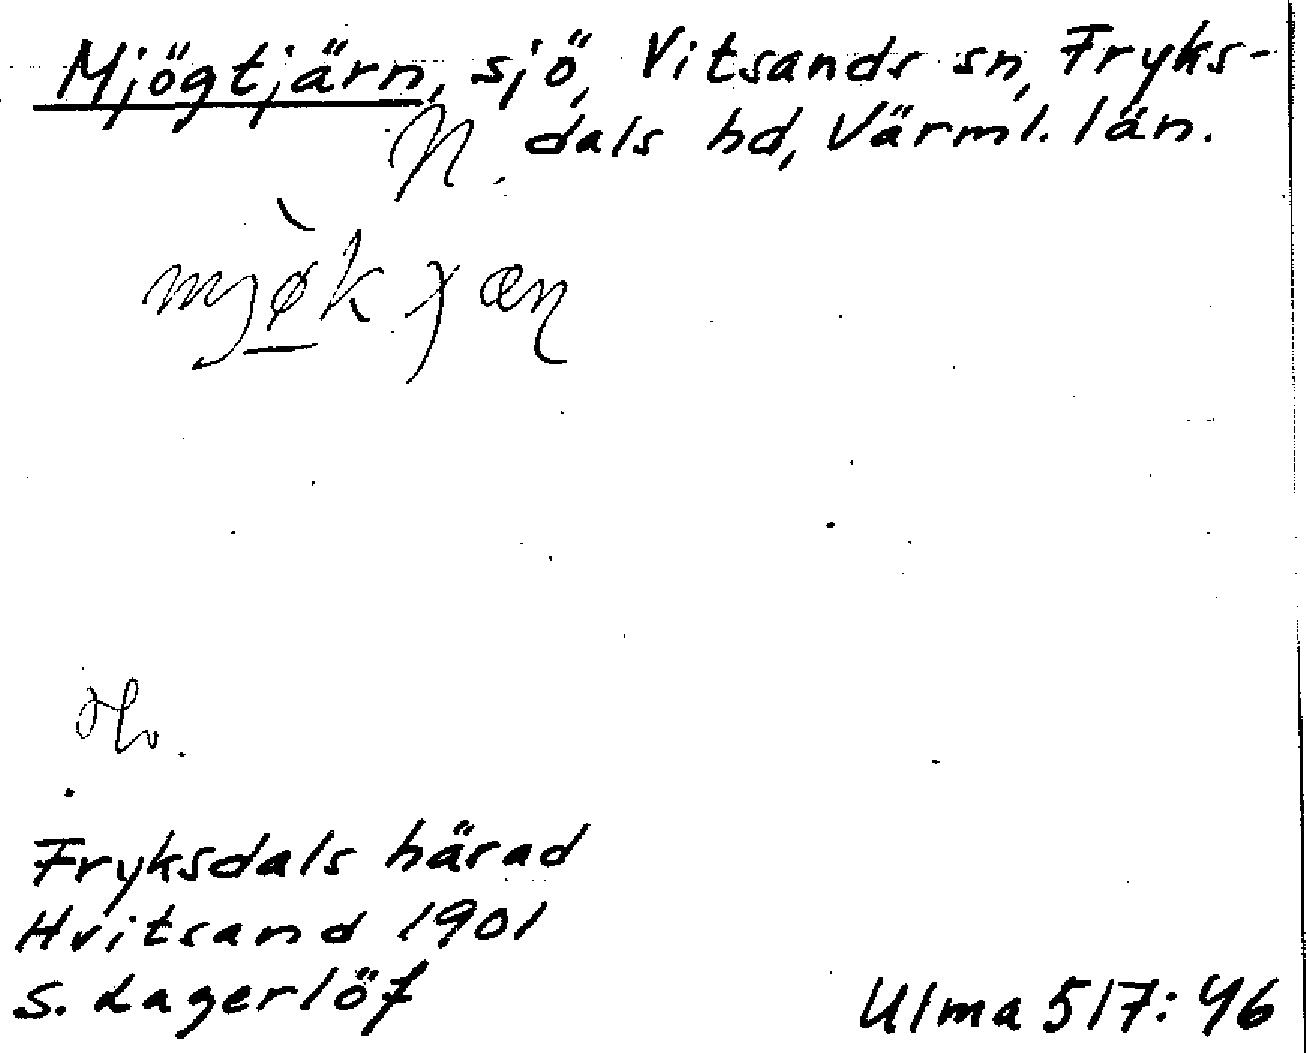 Mjögtjärn, sjö, Vitsands sn, Fryks-
N. dals hd, Värml. län.
Fryksdals härad
Hvitsand 1901
S. Lagerlöf
Ulma 517:46